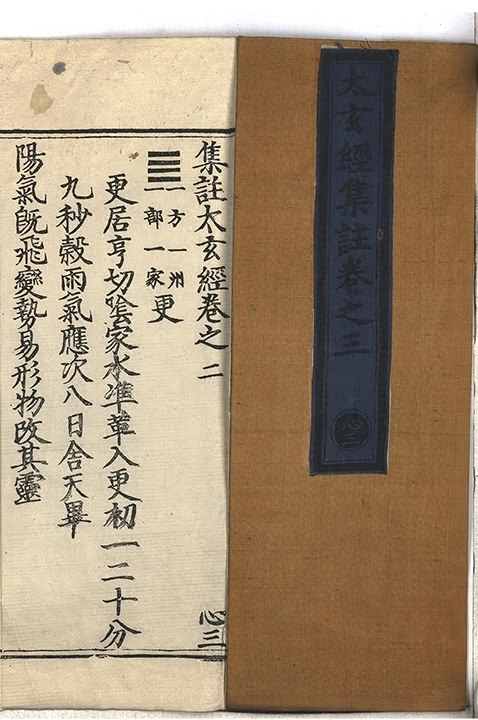 太玄經集註卷之三
心三
集註太玄經卷之二
心三
一方一州
一部一家
更
更居亨切陰家水準革入更初一二十分
九秒穀雨氣應次八日舍天畢
陽氣旣飛變勢易形物改其靈